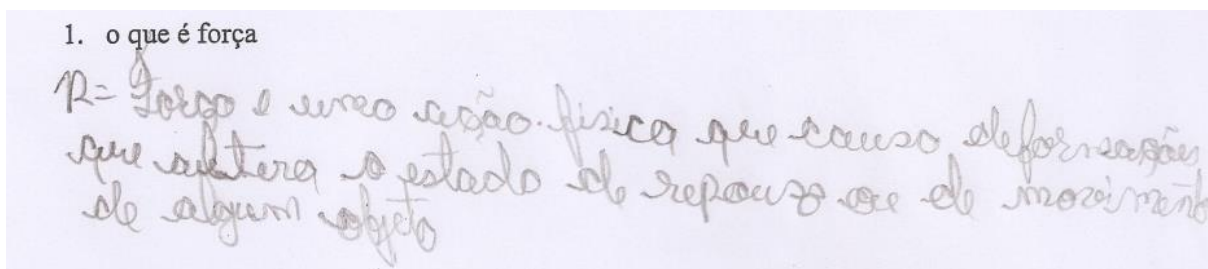 1. o que é força
R= Força e uma ação física que causa deformação
que altera o estado de repouzo ou de movimento
de algum objeto